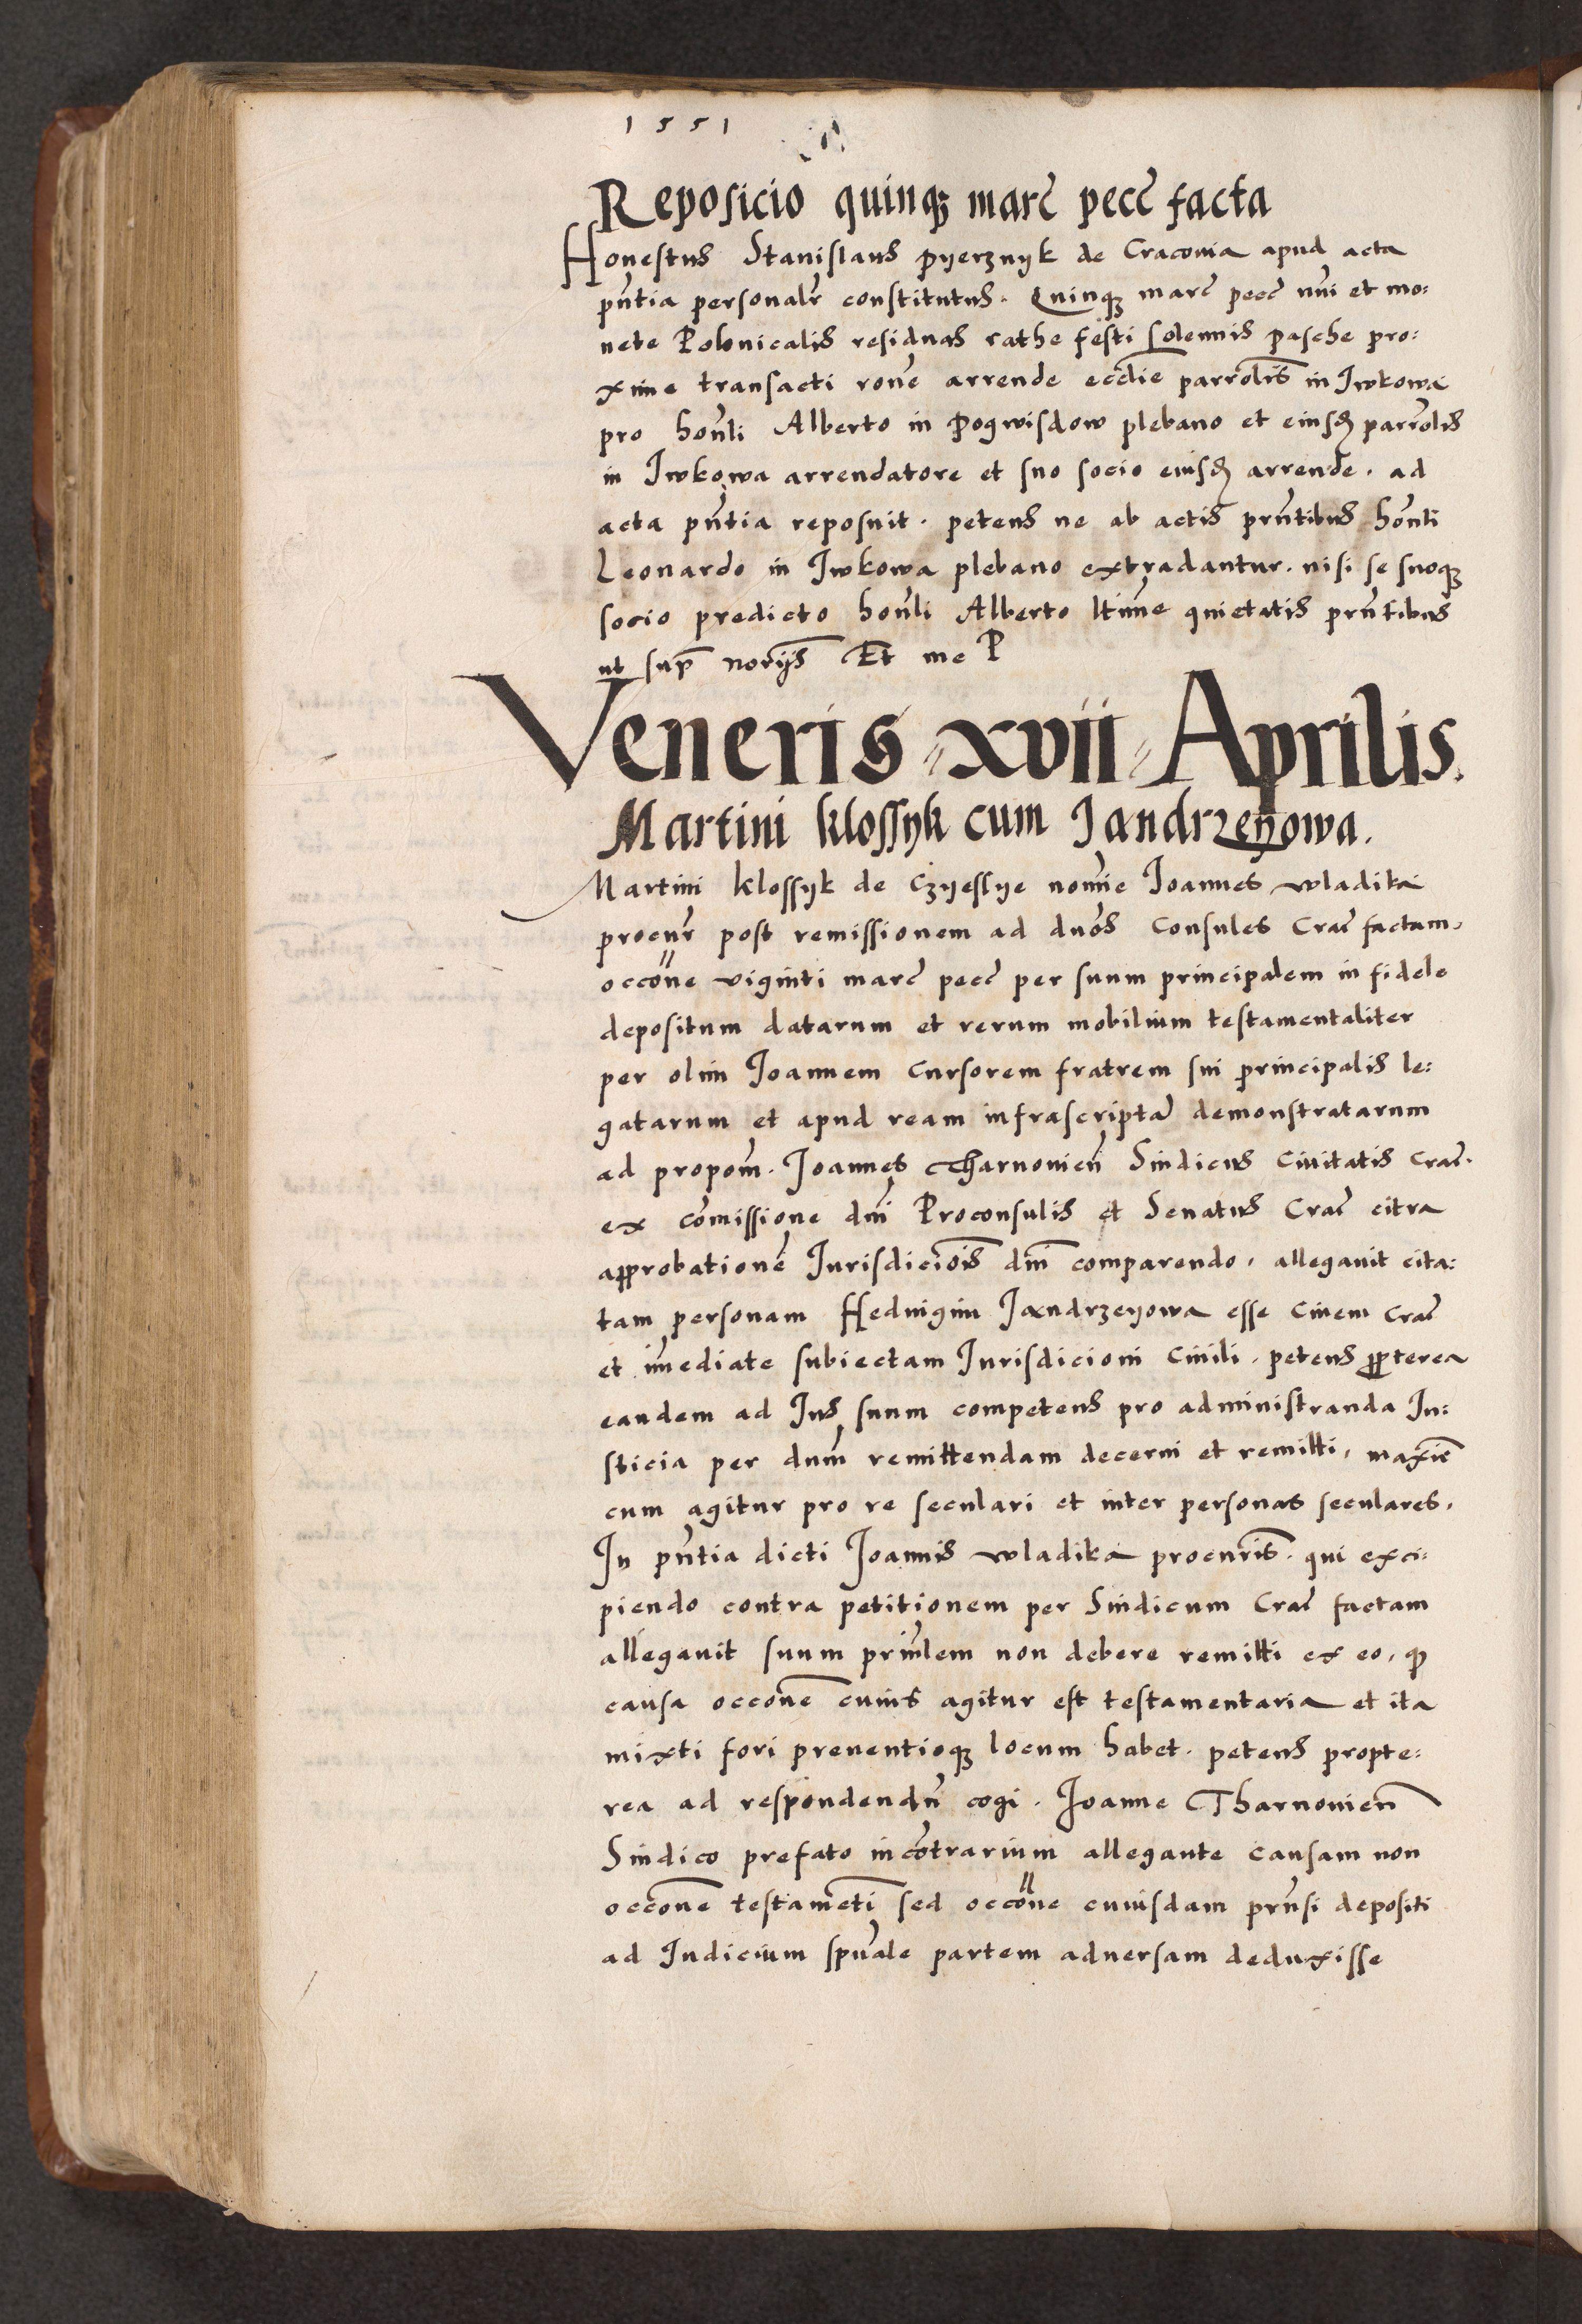 1551
Reposicio quinqꝫ marc̄ pecc̄ facta
Honestus Stanislaus pyerznyk de Cracovia apud acta
pn̄tia personalr̄ constitutus. Quinqꝫ marc̄ pecc̄ nūi et mo:
nete Polonicalis residuas rathe festi solennis pasche pro:
xime transacti rone arrende eccl̄ie parrol̄is in Jwkowa
pro hon̄li Alberto in pogwisdow plebano et eiusd̄ parrol̄is
in Jwkowa arrendatore et suo socio eiusd̄ arrende. ad
acta pn̄tia reposuit. petens ne ab actis prn̄tibus hon̄li
Leonardo in Jwkowa plebano extradantur. nisi se suoqꝫ
socio predicto hon̄li Alberto ltim̄e quietatis prn̄tibus
ut sup̄ norijs Et me P
Veneris xvii Aprilis.
Martini klossyk cum Jandrzeyowa.
Martini klossyk de Czyessye nom̄ie Joannes wladika
procur̄ post remissionem ad dnōs Consules Crac̄ factam,
occōne viginti marc̄ pecc̄ per suum principalem in fidele
depositum datarum et rerum mobilium testamentaliter
per olim Joannem Cursorem fratrem sui principalis le:
gatarum et apud ream infrascriptā demonstratarum
ad propom̄. Joannes Tharnovien̄ Sindicus Civitatis Crac̄.
ex com̄issione dni Proconsulis et Senatus Crac̄ citra
approbationē Jurisdiciōis dni comparendo, allegavit cita:
tam personam Hedvigim Jandrzeyowa esse Civem Crac̄
et im̄ediate subiectam Jurisdicioni Civili. petens ꝓpterea
eandem ad Jus suum competens pro administranda Ju:
sticia per dum̄ remittendam decerni et remitti, maxīe
cum agitur pro re seculari et inter personas seculares.
In pn̄tia dicti Joannis wladika procuris̄. qui exci:
piendo contra petitionem per Sindicum Crac̄ factam
allegavit suum prin̄lem non debere remitti ex eo, qͩ
causa occone cuius agitur est testamentaria et ita
mixti fori preventioqꝫ locum habet. petens propte:
rea ad respondendū cogi. Joanne Tharnovien̄
Sindico prefato incōtrarium allegante causam non
occone testamēti sed occōne cuiusdam prn̄si depositi
ad Judicium spūale partem adversam deduxisse